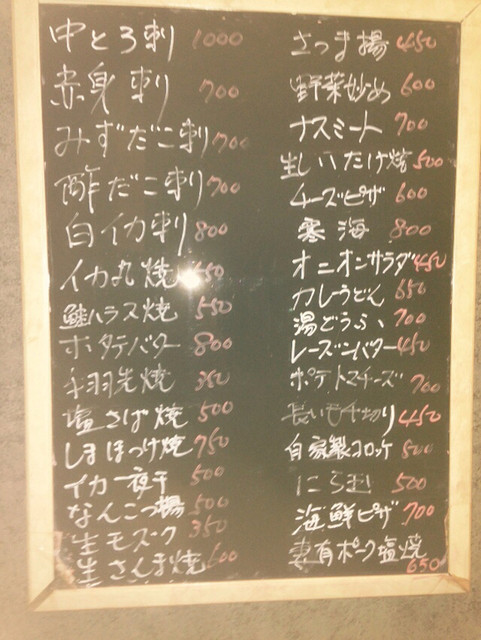 中とろ刺 1000
赤身刺 700
みずだこ刺 700
酢だこ刺 700
白イカ刺 800
イカ丸焼 450
鮭ハラス焼 550
ホタテバター 800
手羽先焼 350
塩さば焼 500
しまほっけ焼 750
イカ一夜干 500
なんこつ揚 500
生モズク 350
生さんま焼 600
さつま揚 450
野菜炒め 600
ナスミート 700
生しいたけ焼 500
チーズピザ 600
寒海 800
オニオンサラダ 450
カレーうどん 650
湯どうふ 700
レーズンバター 450
ポテトスチーズ 700
長いも千切り 450
自家製コロッケ 500
にら玉 500
海鮮ピザ 700
妻有ポーク塩焼 650